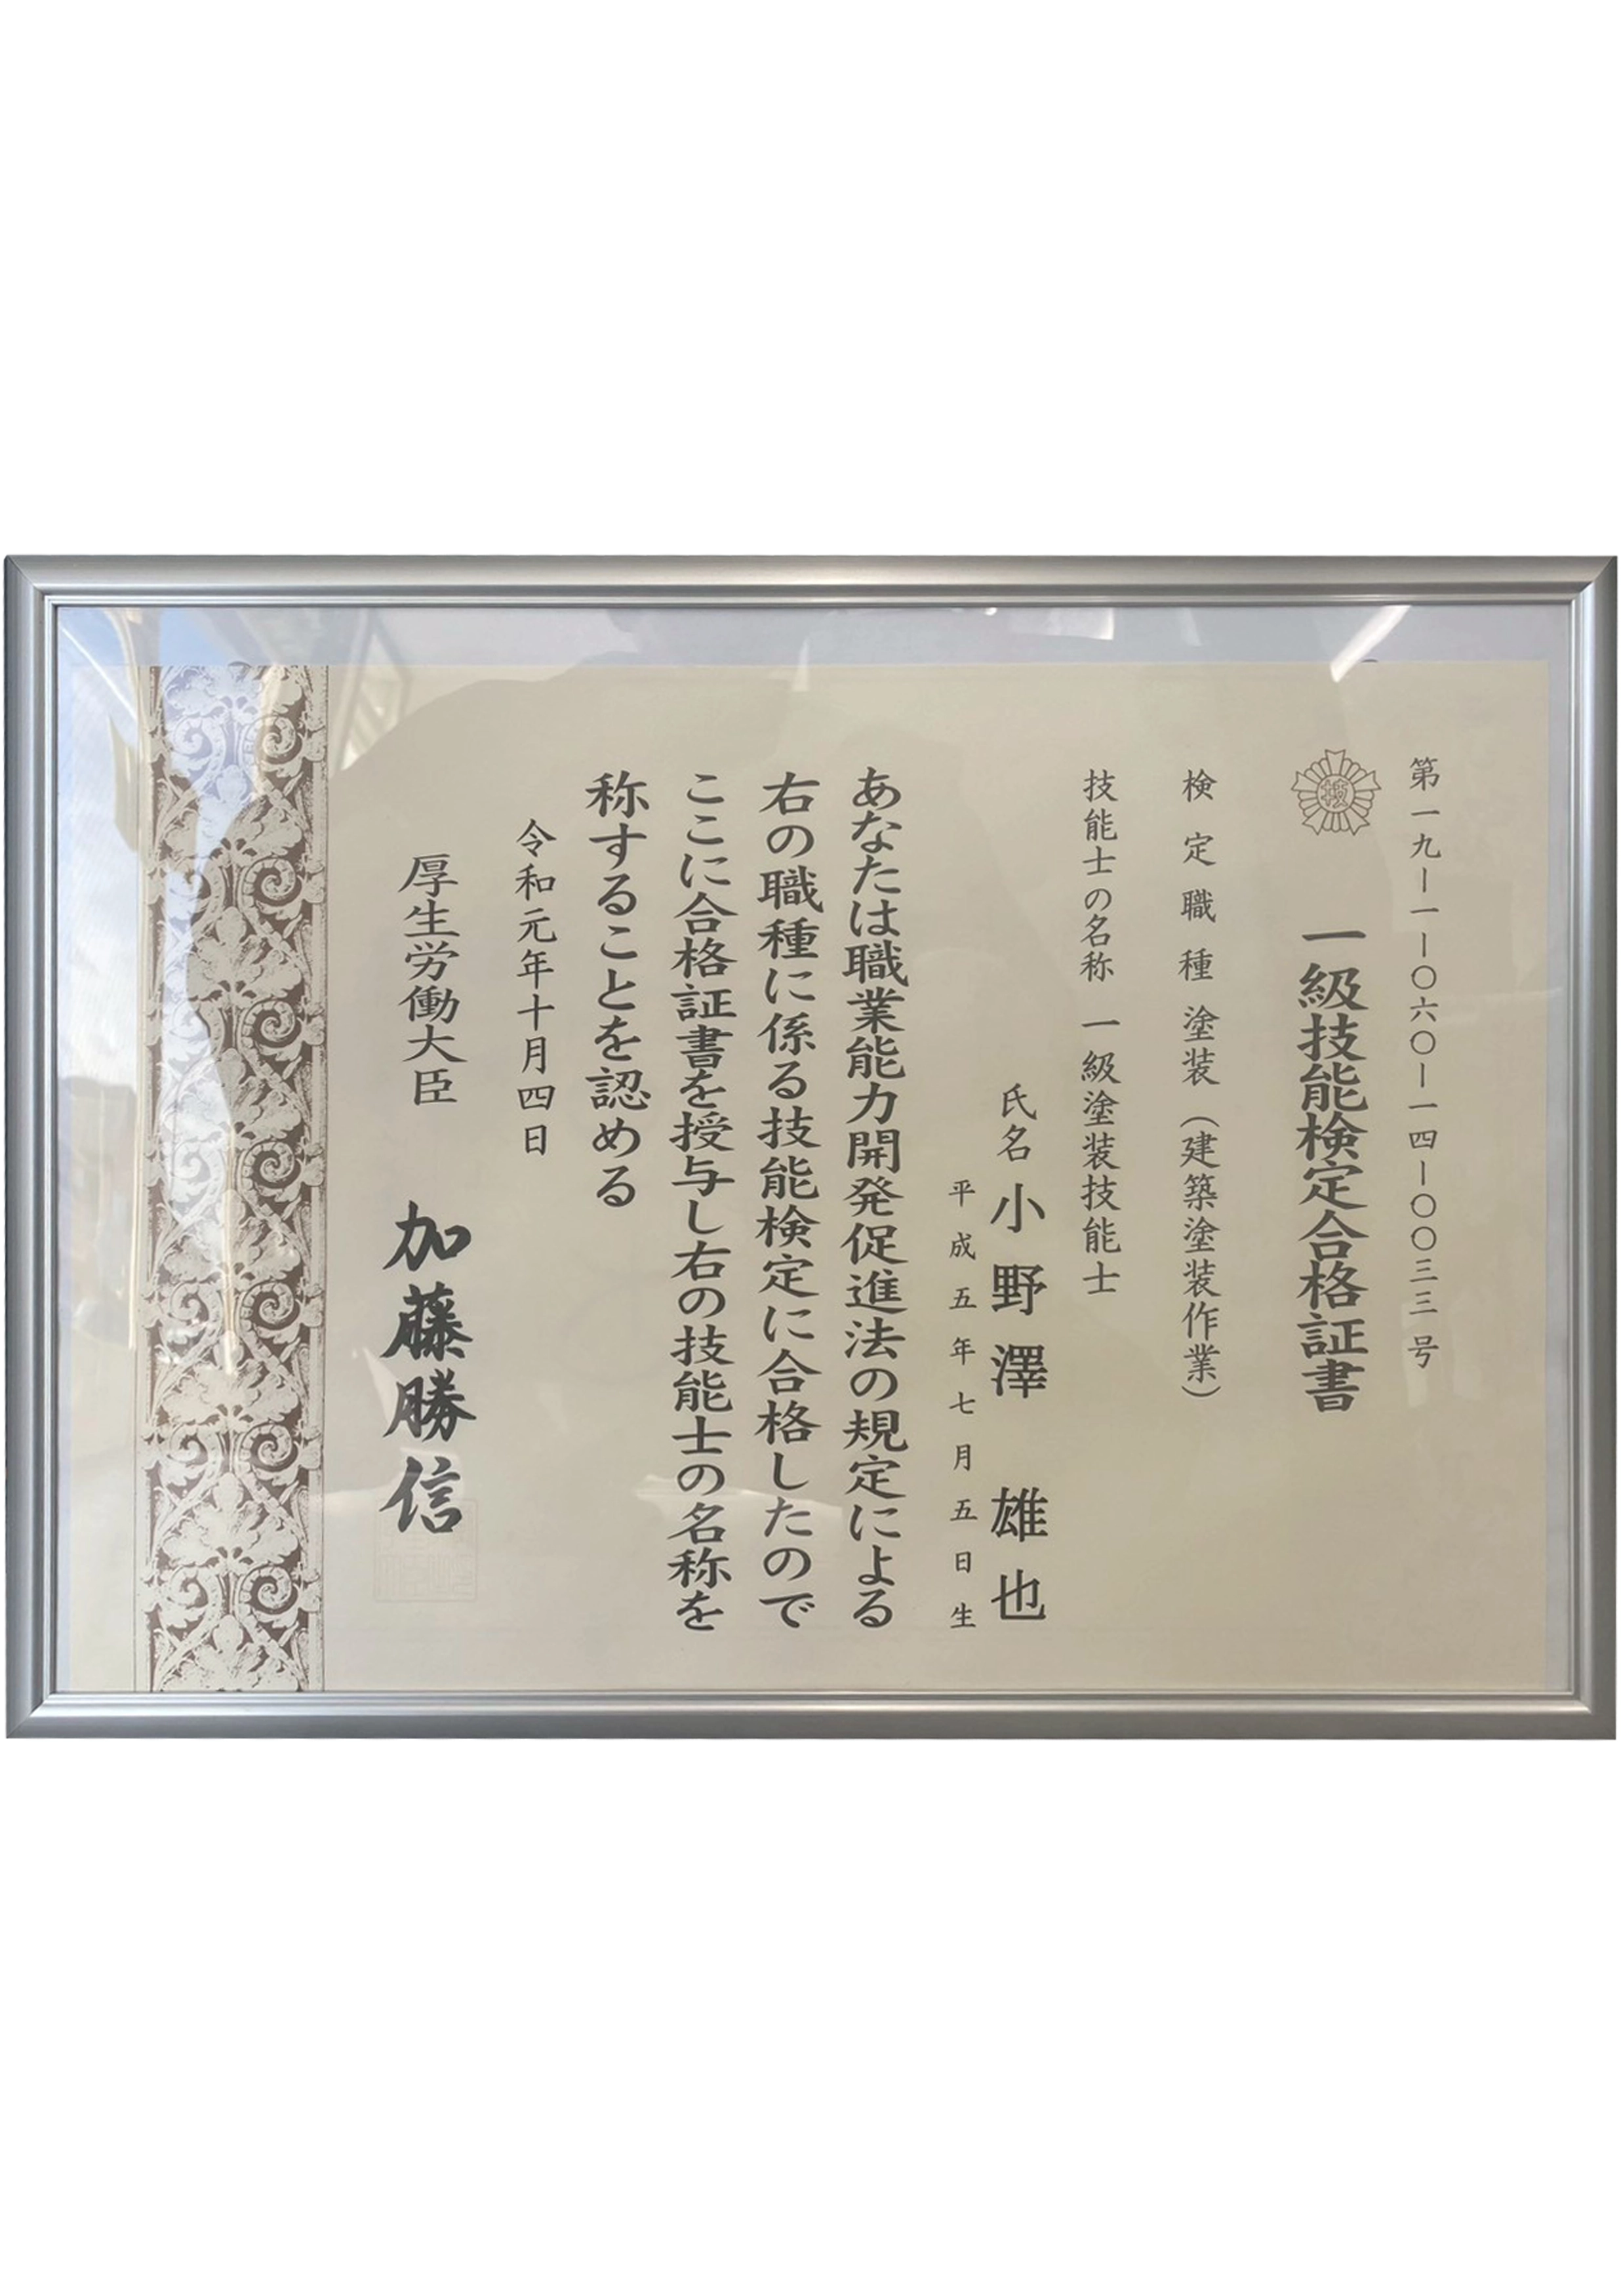 第一九ー一ー〇六〇ー一四ー〇〇三三号
技
一級技能検定合格証書
検定職種 塗装（建築塗装作業）
技能士の名称 一級塗装技能士
氏名 小野澤 雄也
平成五年七月五日生
あなたは職業能力開発促進法の規定による
右の職種に係る技能検定に合格したので
ここに合格証書を授与し右の技能士の名称を
称することを認める
令和元年十月四日
厚生労働大臣 加藤勝信